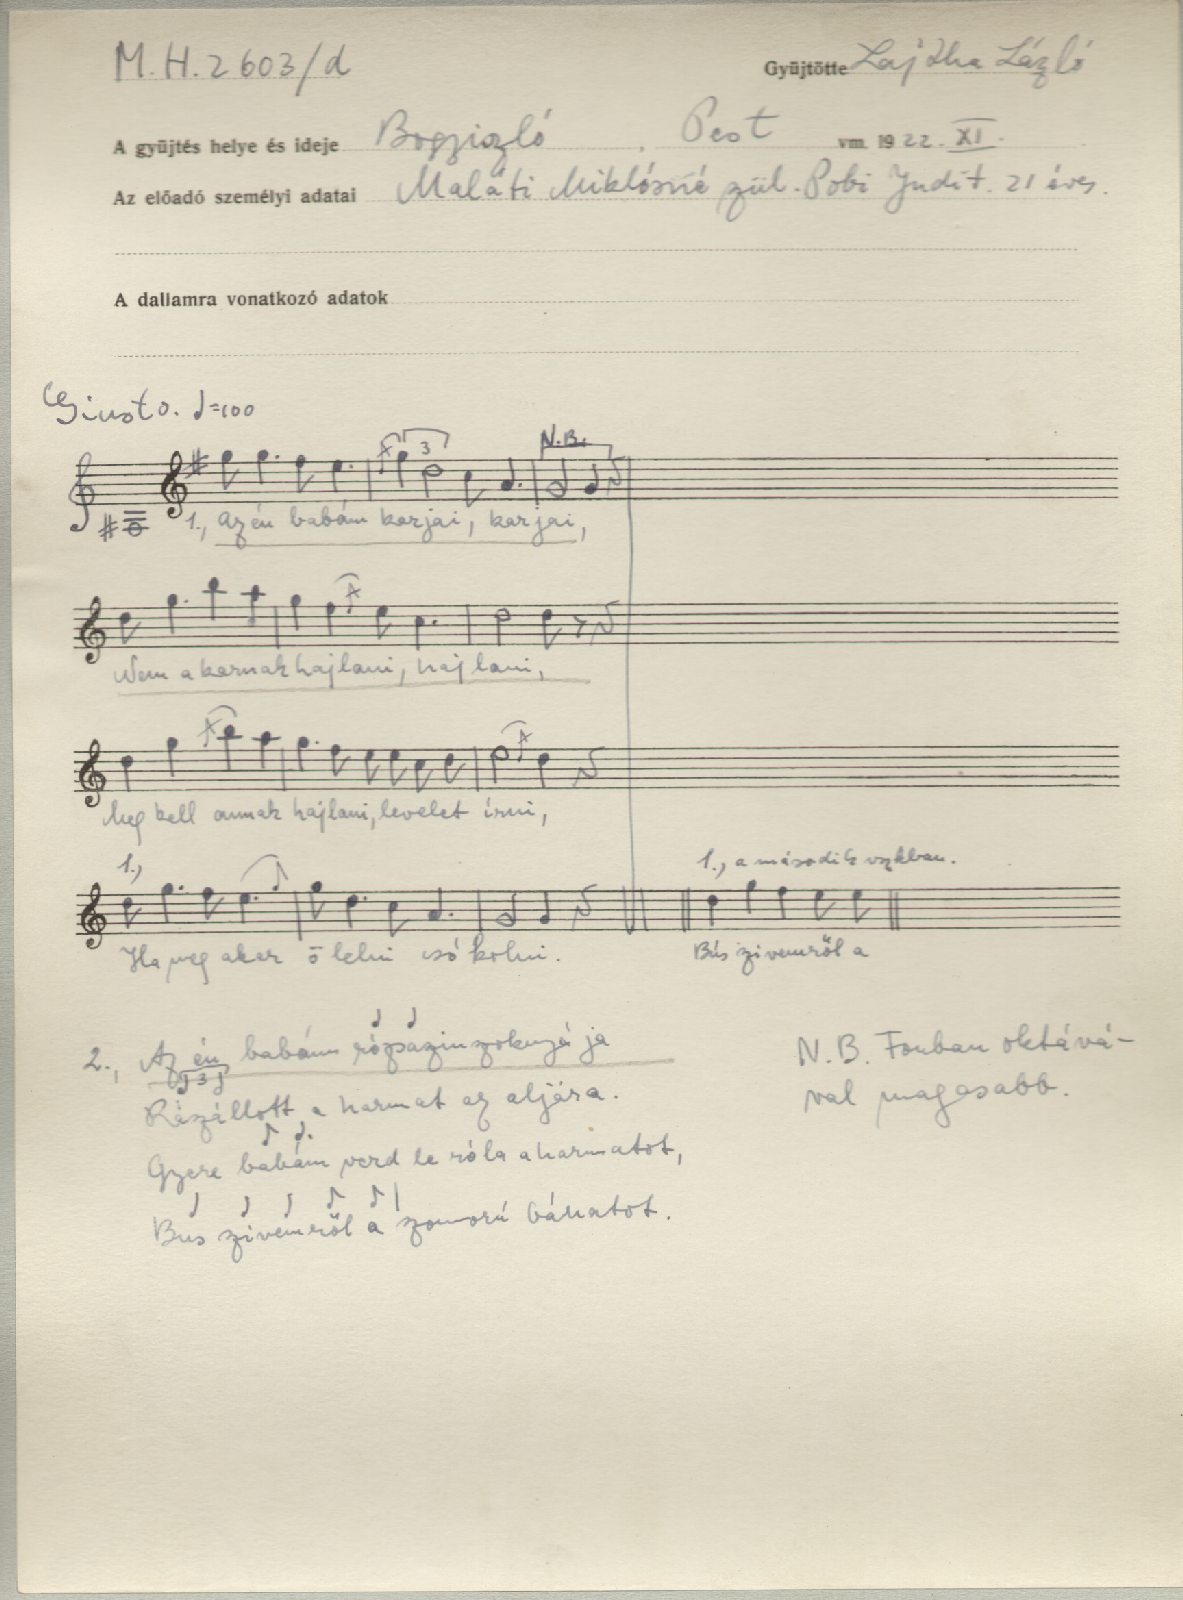 M.H. 2603/d
Gyüjtötte Lajtha László
A gyüjtés helye és ideje Bogyiszló, Pest vm. 1922. XI.
Az előadó személyi adatai Maláti Miklósné szül. Pobi Judit. 21 éves.
A dallamra vonatkozó adatok
Giusto. ♩=100
N.B.
3
1., Az én babám karjai, karjai,
Nem akarnak hajlani, hajlani,
Meg kell annak hajlani, levelet írni,
1.,
1., a második vszkban.
Ha meg akar ölelni csókolni.
Bús szivemről a
2., Az én babám rózsaszin szoknyája
3
Rászállott a harmat az aljára.
Gyere babám verd le róla a harmatot,
Bus szivemről a szomorú bánatot.
N.B. Fonban oktává-
val magasabb.